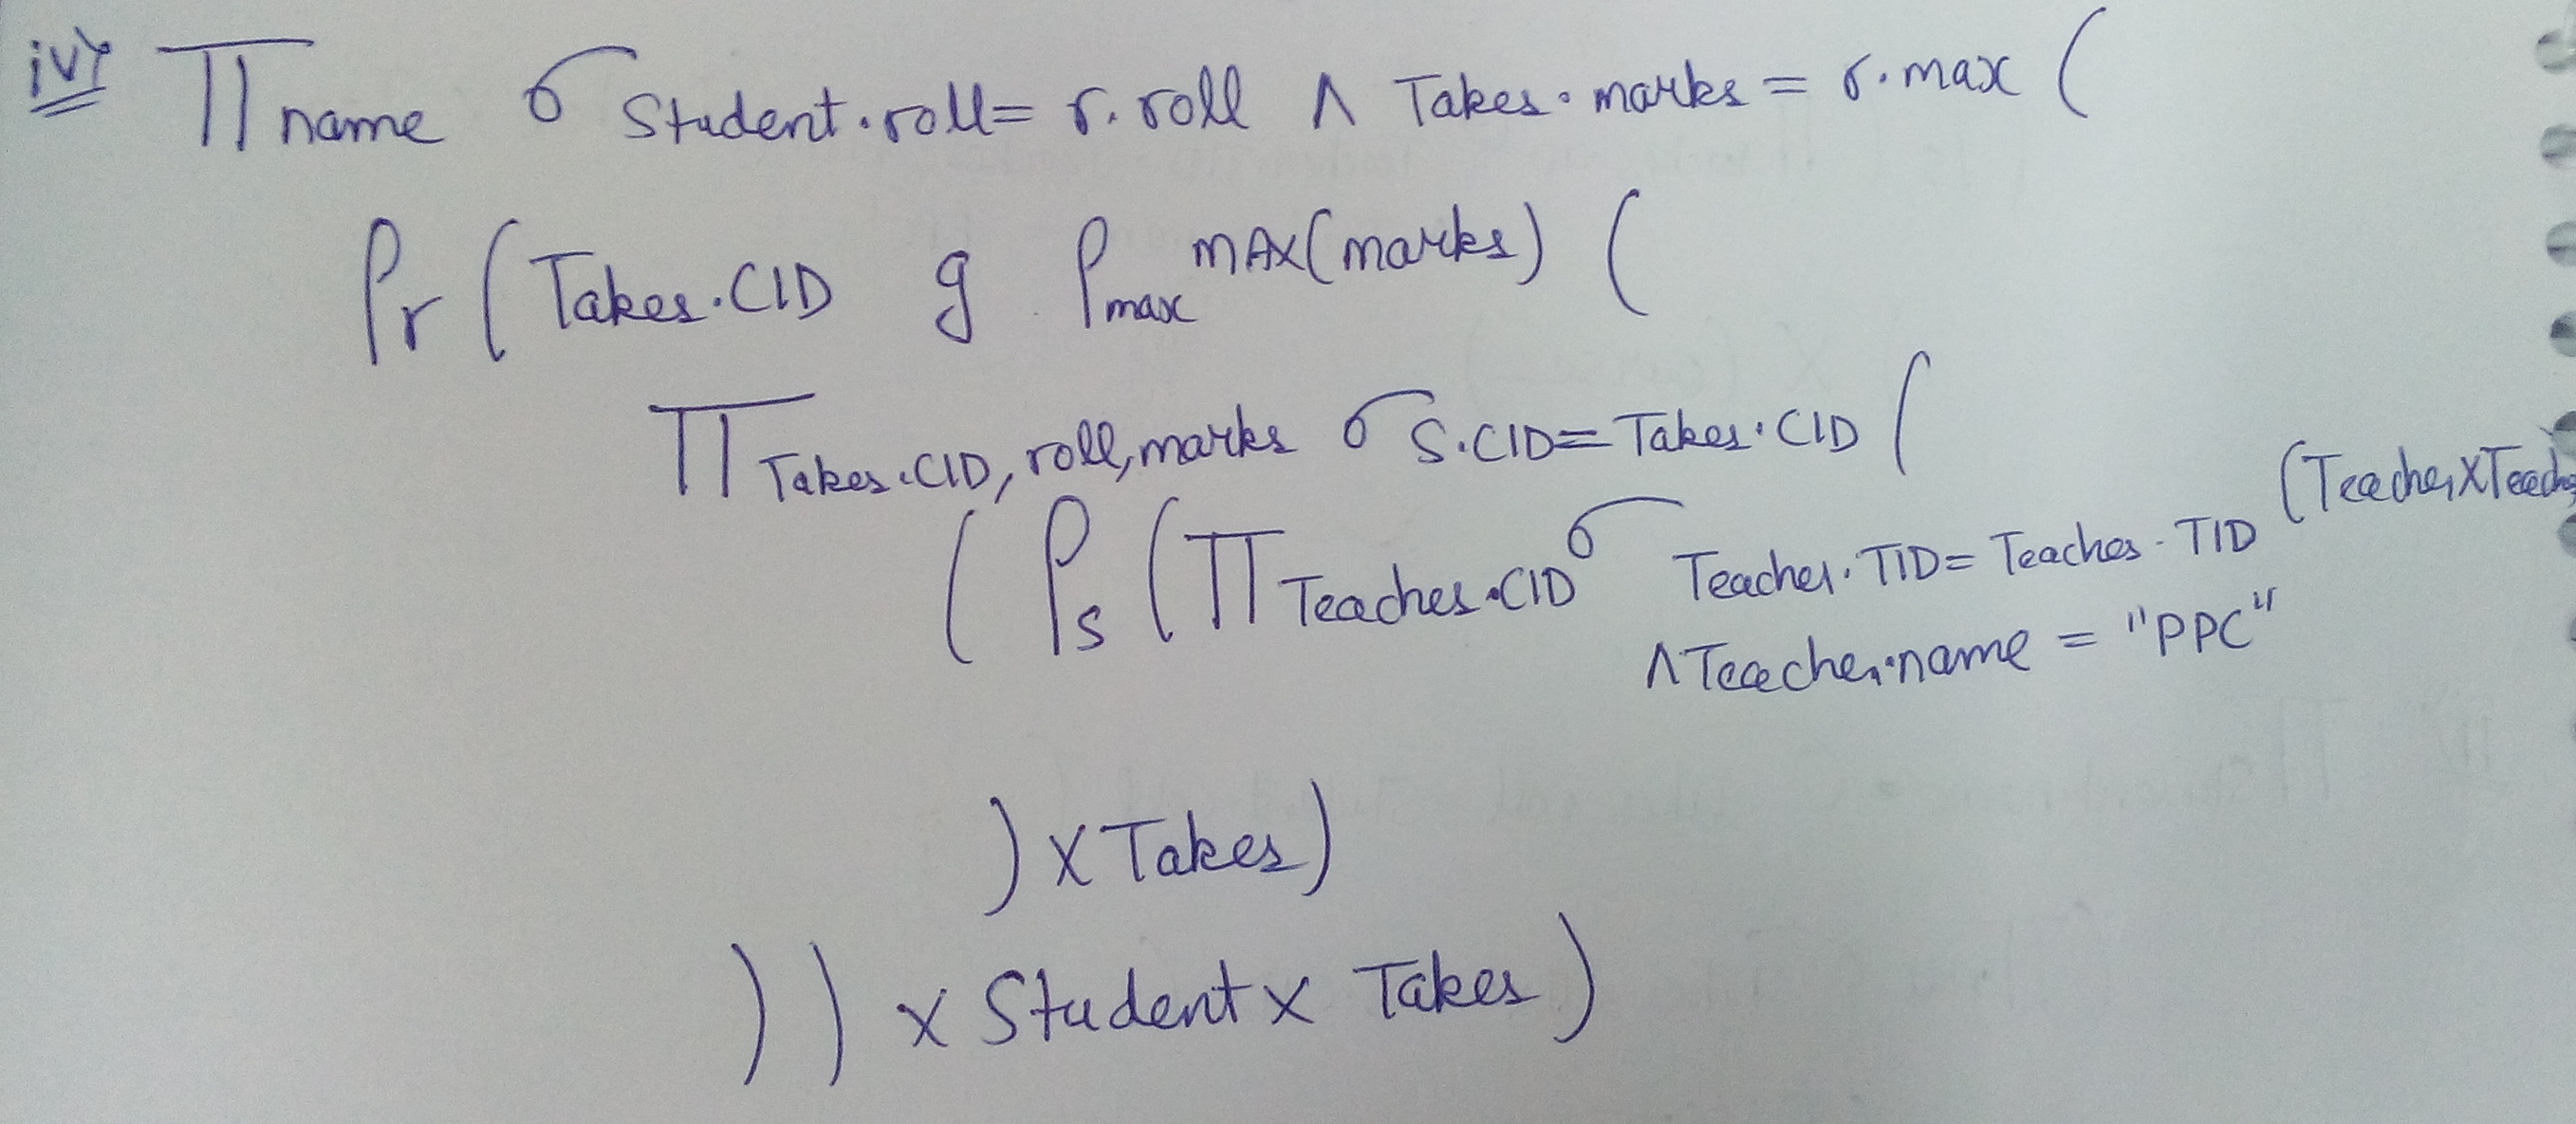 iv) Π name σ Student.roll = r.roll ∧ Takes.marks = r.max (
ρr ( Takes.CID g ρmax MAX(marks) (
Π Takes.CID, roll, marks σ S.CID = Takes.CID (
( ρs ( Π Teaches.CID σ Teacher.TID = Teaches.TID (Teacher X
∧ Teacher.name = "PPC"
) X Takes )
) ) x Student x Takes )